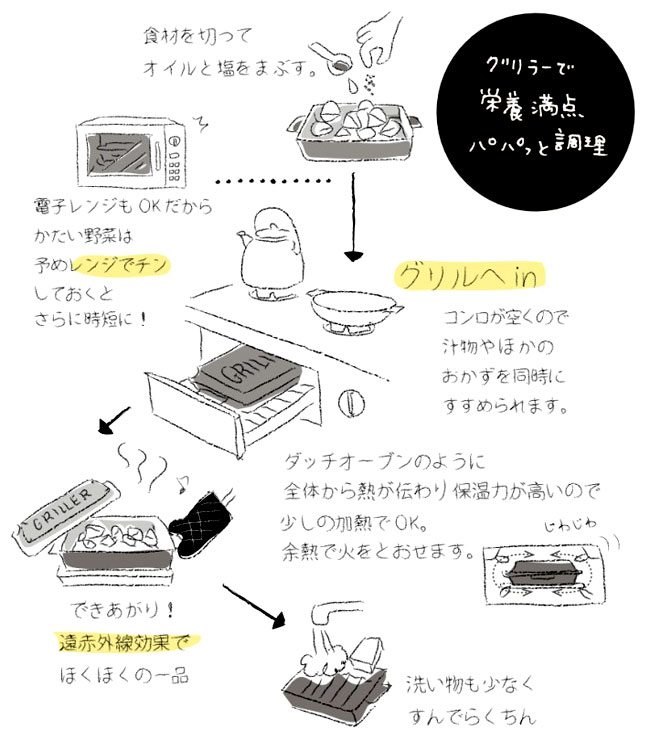 食材を切って
オイルと塩をまぶす。
グリラーで
栄養満点
パパっと調理
電子レンジもOKだから
かたい野菜は
予めレンジでチン
しておくと
さらに時短に！
グリルへin
コンロが空くので
汁物やほかの
おかずを同時に
すすめられます。
GRILLER
ダッチオーブンのように
全体から熱が伝わり保温力が高いので
少しの加熱でOK。
余熱で火をとおせます。
じわじわ
GRILLER
できあがり！
遠赤外線効果で
ほくほくの一品
洗い物も少なく
すんでらくちん